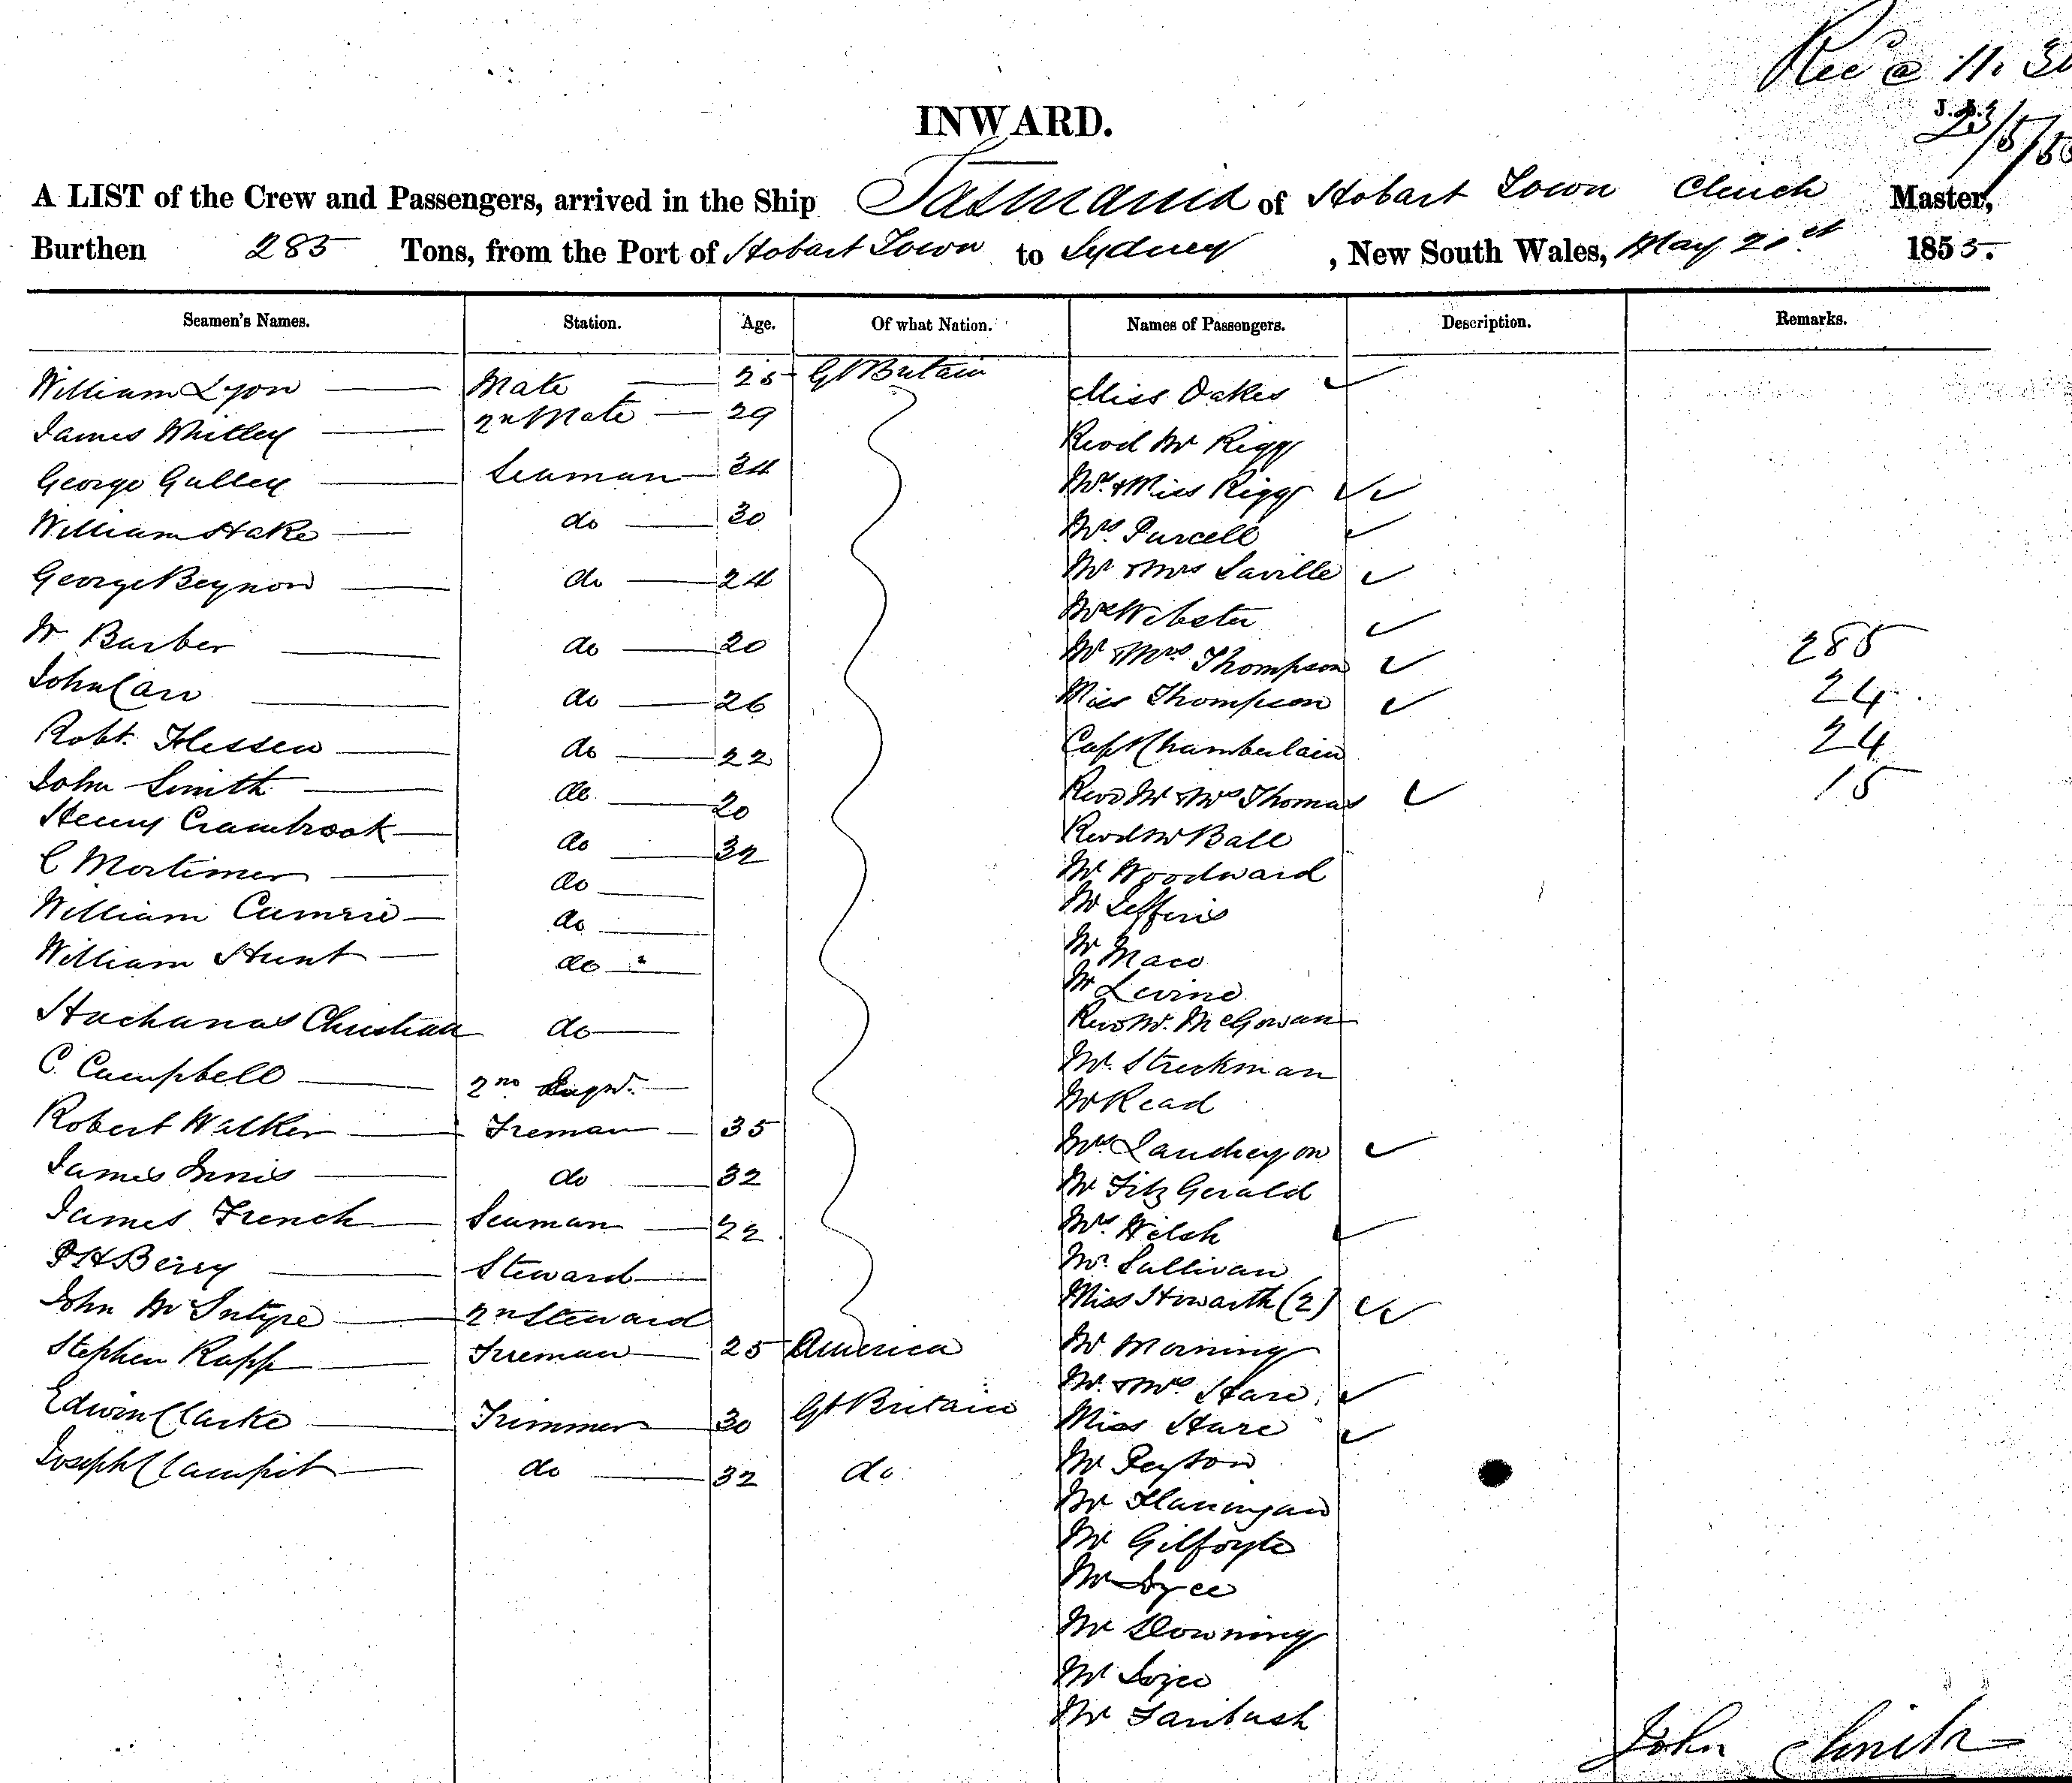 Rec @ 11.30
INWARD.
A LIST of the Crew and Passengers, arrived in the Ship Tasmania of Hobart Town Clinch Master,
Burthen 285 Tons, from the Port of Hobart Town to Sydney, New South Wales, May 21st 1855.
Seamen's Names. Station. Age. Of what Nation. Names of Passengers. Description. Remarks.
William Lyon Mate 25 Gt Britain Miss Oakes
James Whitley 2n Mate 29 Revd Mr Rigg
George Gulley Seaman 34 Mrs & Miss Rigg
William Hake do 30 Mrs Purcell
George Beynon do 24 Mr & Mrs Saville
W Barber do 20 Webster
John Carr do 26 Mr & Mrs Thompson 285
Robt. do 22 Miss Thompson 24
John Smith do 20 Capt Chamberlain 24
Henry Crambrook do 32 Revd Mr & Mrs Thomas 15
C Mortimer do Revd Mr Ball
William do Mr Woodward
William Hunt do Mr Jefferis
Christian do Mr
C. Campbell 2nd Mr Levine
Robert Walker Fireman 35 Revd Mr. McGowan
James Innis do 32 Mr.
James French Seaman 22 Mr Read
Berry Steward Mrs.
John McIntyre 2n Steward Mr FitzGerald
Stephen Rapp Fireman 25 America Mrs. Welsh
Edwin Clarke Trimmer 30 Gt Britain Mr. Sullivan
Joseph Clampit do 32 do Miss Howarth (2)
Mr Morning
Mr. & Mrs Hare
Miss Hare
Mr Peyton
Mr Flanningan
Mr Gilfoyle
Mr
Mr Downing
Mr Joyce
Mr
John Clinch